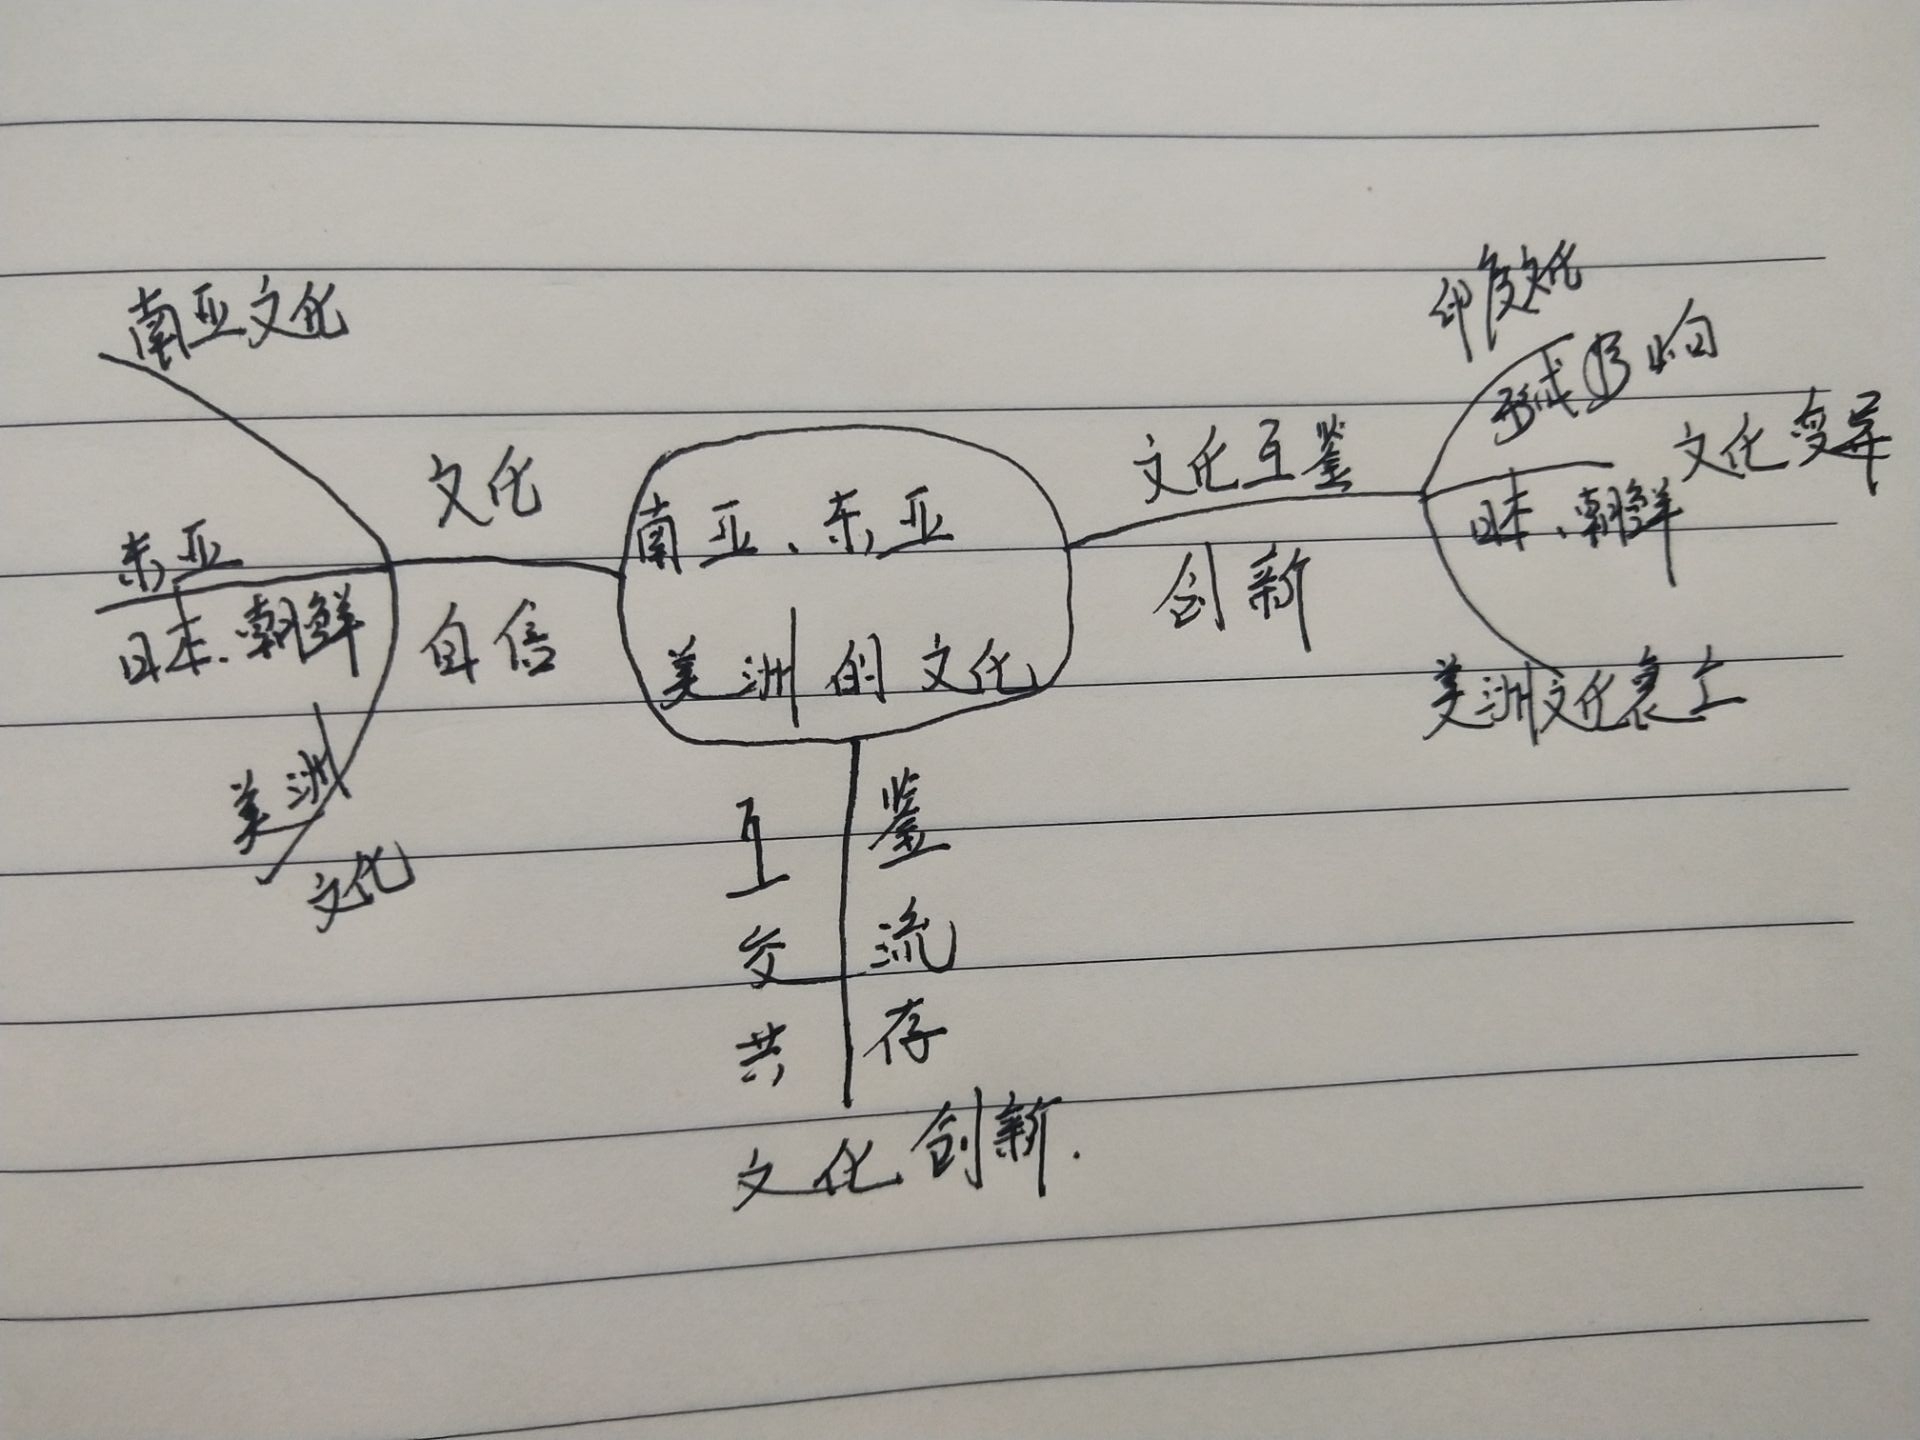 南亚文化
东亚
日本、朝鲜
美洲
文化
文化
自信
南亚、东亚
美洲的文化
文化互鉴
创新
印度文化
形成影响
文化变异
日本、朝鲜
美洲文化衰亡
互鉴
交流
共存
文化创新.